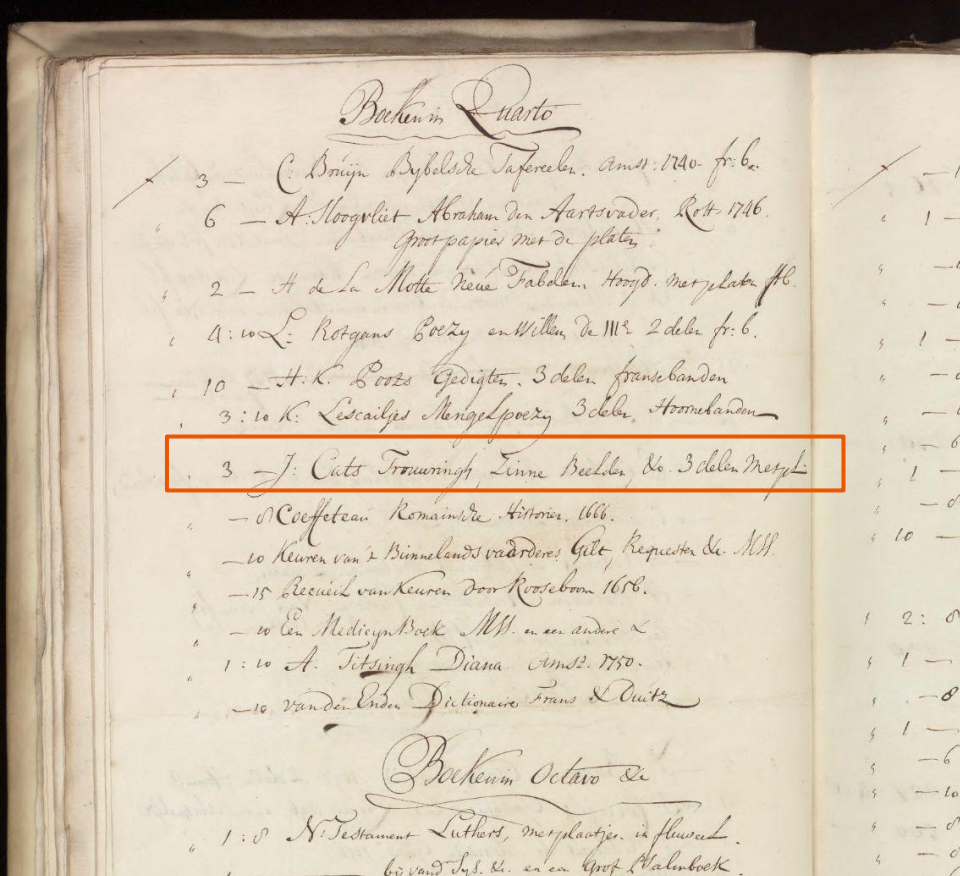 Boeken in Quarto
3 — C: Bruijn Bybelsche Tafereelen. Amst: 1740 - fr: 6..
6 — A: Hoogvliet Abraham den Aartsvader, Rott 1746.
Groot papier met de platen
2 — H de La Motte Neue Fabelen Hoogd. met platen
4:10 L: Rotgans Poezy en Willem de IIIe 2 delen fr: 6.
10 — H. K. Poots Gedigten. 3 delen fransebanden
3:10 K: Lescailjes Mengelpoezy 3 delen, Hoornebanden
3 — J: Cats Trouwringh, Zinne Beelden, &c. 3 delen met pl:
— 8 Coeffeteau Romainsche Historien. 1666.
— 10 Keuren van 't Binnelandsvaarderes Gilt, Requesten &c. MSS.
— 15 Recueil van Keuren door Rooseboom 1656.
— 10 Een Medicyn Boek MSS. en een andere
1:10 A. Titsingh Diana Amst. 1750.
— 10 van den Enden Dictionaire Frans & Duitz
Boeken in Octavo &c
1:8 N: Testament Luthers, met plaatjes. in fluweel.
en een Grof Psalmboek
1
1
1
6
1
8
10 —
2: 8
1 —
— 8
1 —
— 6
— 10
— 8